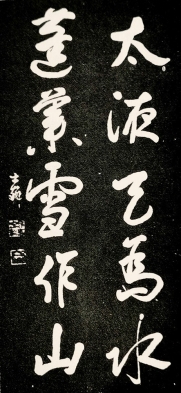 太液天為水
蓬萊雪作山